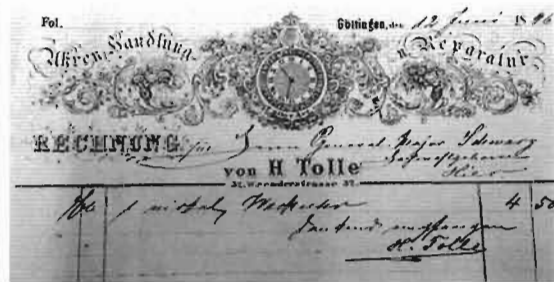 Fol. Göttingen, den 12 Juni 18
Uhren Handlung u Reparatur
RECHNUNG für Herrn General-Major Schwarz
Hier
von H Tolle
37. Weenderstrasse 37.
1 Wecker 4 50
Dankend empfangen
H. Tolle